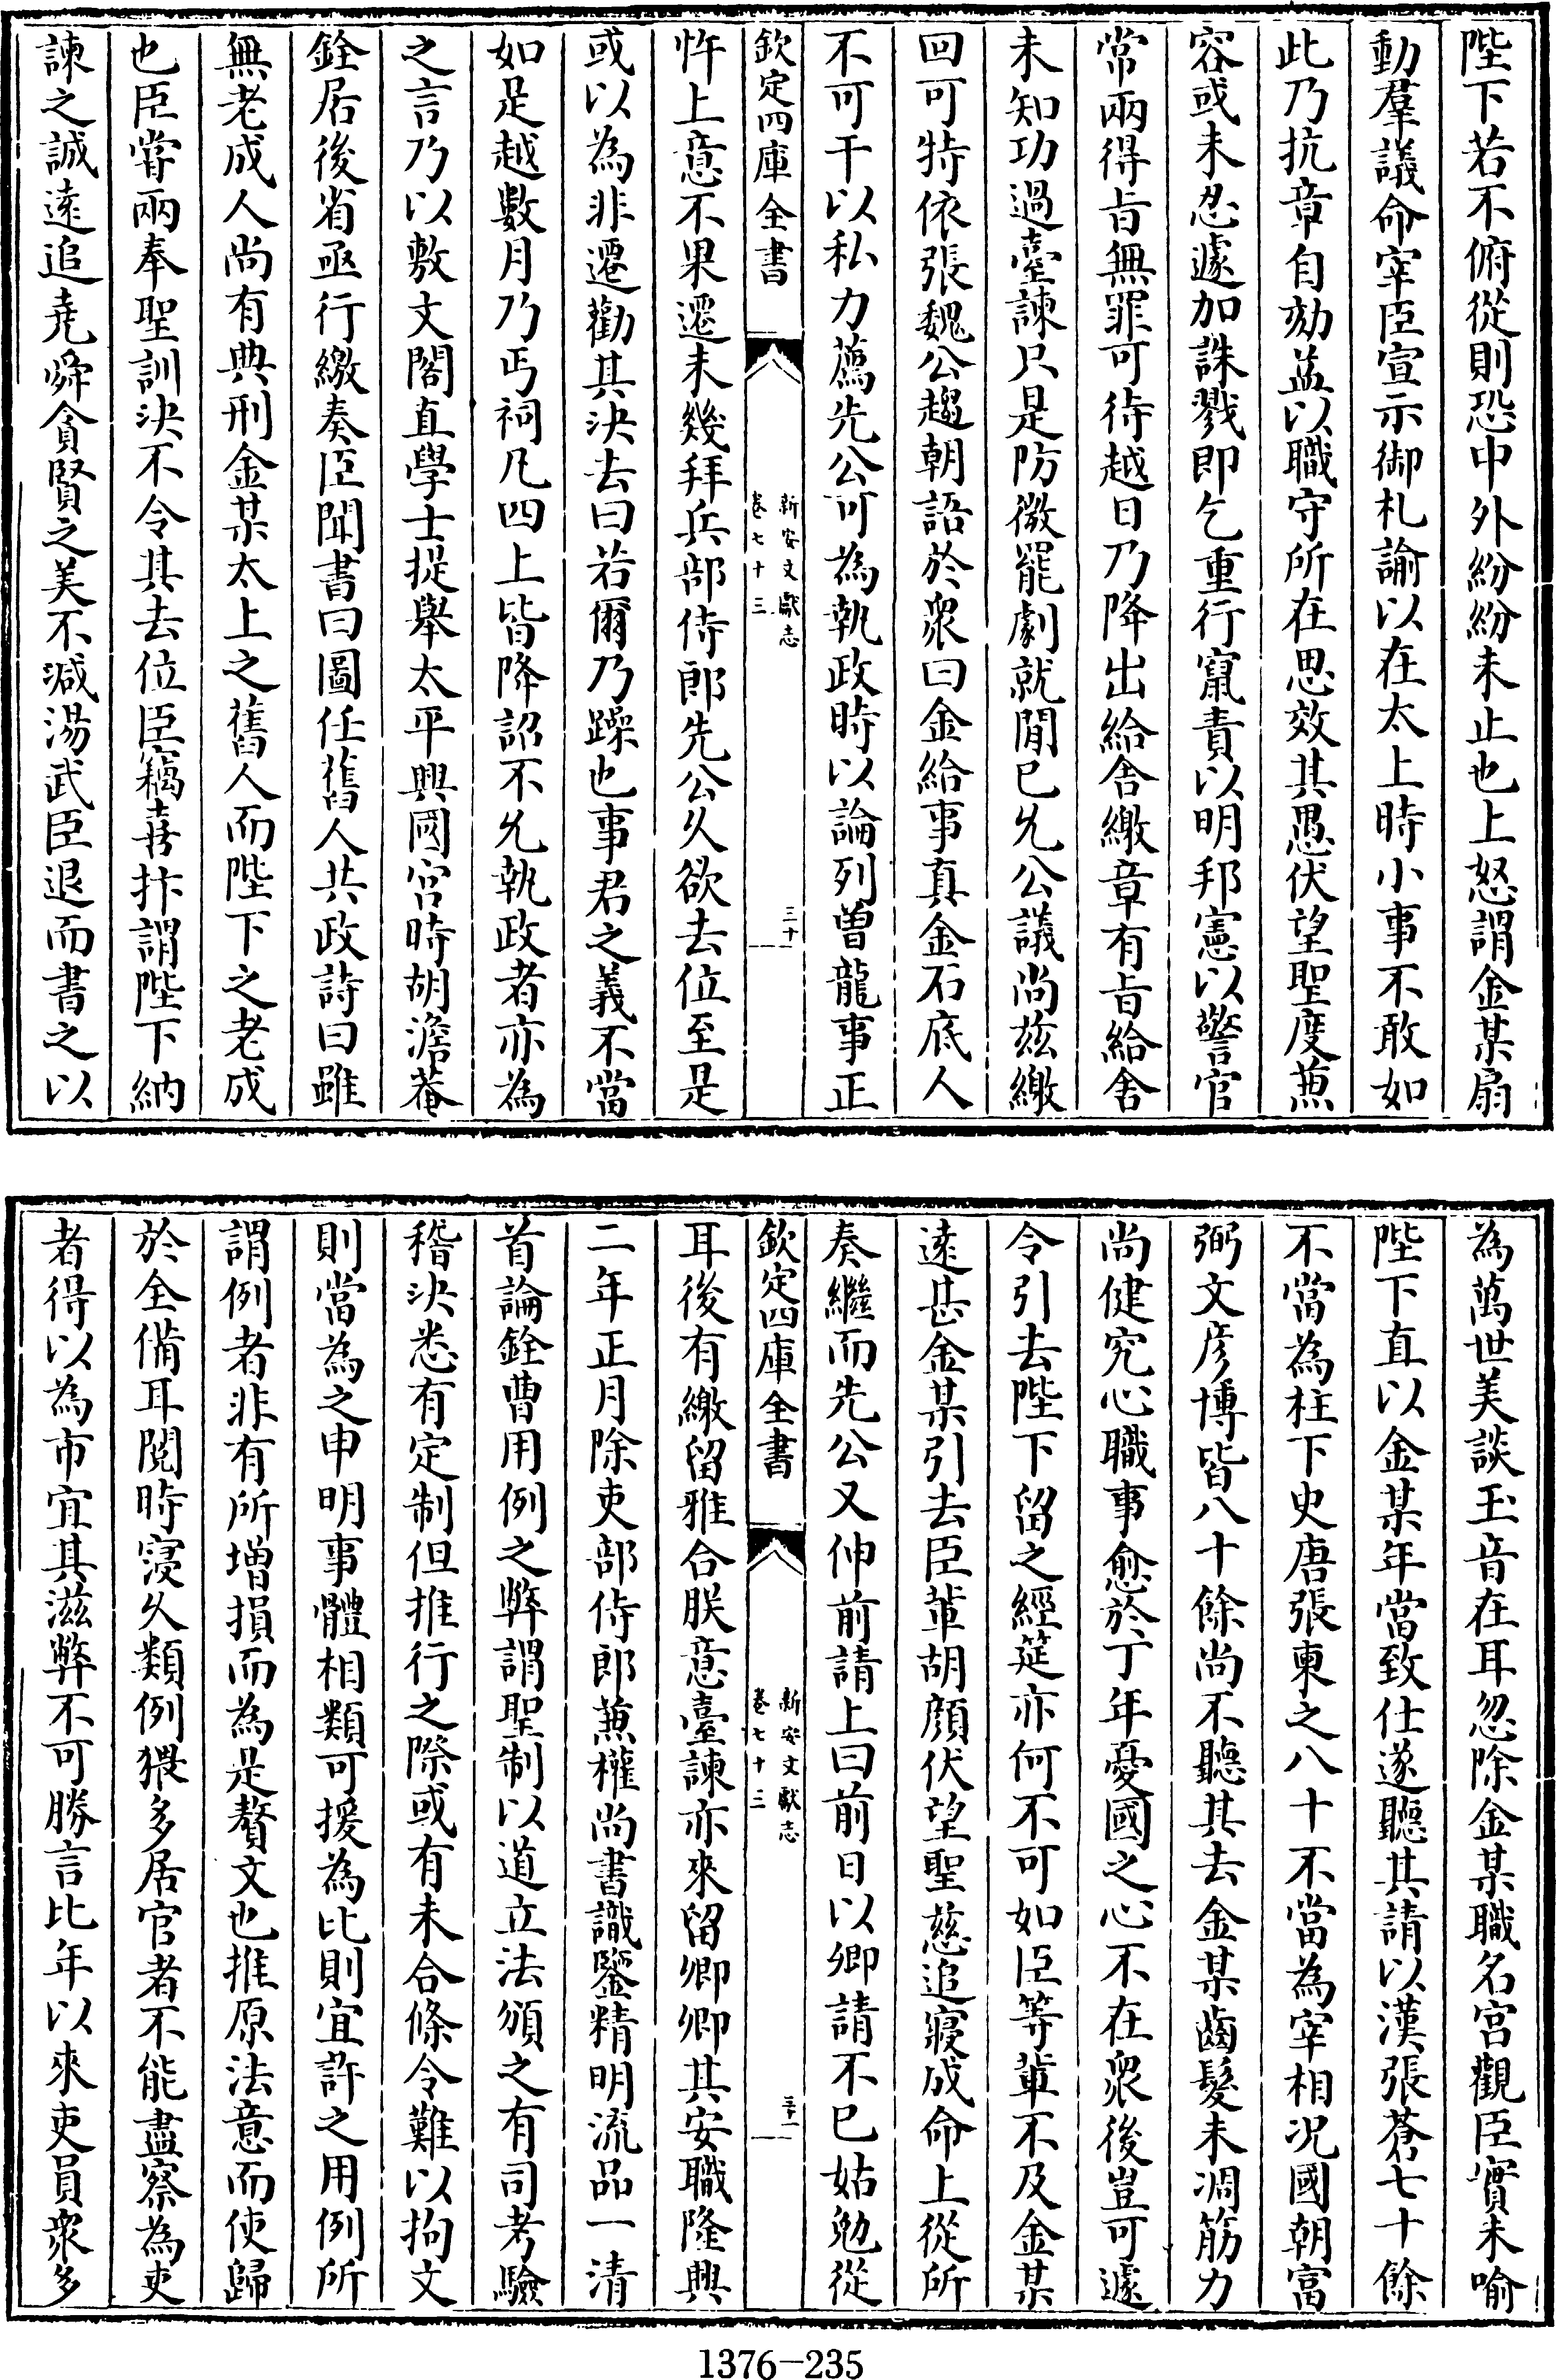 陛下若不俯從則恐中外紛紛未止也上怒謂金某扇
動羣議命宰臣宣示御札諭以在太上時小事不敢如
此乃抗章自劾益以職守所在思效其愚伏望聖度兼
容或未忍遽加誅戮即乞重行竄責以明邦憲以警官
常兩得旨無罪可待越日乃降出給舍繳章有旨給舍
未知功過臺諫只是防微罷劇就閒已允公議尚兹繳
回可特依張魏公趨朝語於衆曰金給事真金石底人
不可干以私力薦先公可為執政時以論列曽龍事正
欽定四庫全書
新安文獻志
卷七十三
三十
忤上意不果遷未幾拜兵部侍郎先公久欲去位至是
或以為非遷勸其決去曰若爾乃躁也事君之義不當
如是越數月乃丐祠凡四上皆降詔不允執政者亦為
之言乃以敷文閣直學士提舉太平興國宫時胡澹菴
銓居後省亟行繳奏臣聞書曰圖任舊人共政詩曰雖
無老成人尚有典刑金某太上之舊人而陛下之老成
也臣嘗兩奉聖訓決不令其去位臣竊喜抃謂陛下納
諫之誠遠追堯舜貪賢之美不減湯武臣退而書之以
為萬世美談玉音在耳忽除金某職名宫觀臣實未喻
陛下直以金某年當致仕遂聽其請以漢張蒼七十餘
不當為柱下史唐張柬之八十不當為宰相况國朝富
弼文彦博皆八十餘尚不聽其去金某齒髮未凋筋力
尚健究心職事愈於丁年憂國之心不在衆後豈可遽
令引去陛下留之經筵亦何不可如臣等輩不及金某
遠甚金某引去臣輩胡顔伏望聖慈追寢成命上從所
奏繼而先公又伸前請上曰前日以卿請不已姑勉從
欽定四庫全書
新安文獻志
卷七十三
三十一
耳後有繳留雅合朕意臺諫亦來留卿卿其安職隆興
二年正月除吏部侍郎兼權尚書識鑒精明流品一清
首論銓曹用例之弊謂聖制以道立法頒之有司考驗
稽決悉有定制但推行之際或有未合條令難以拘文
則當為之申明事體相類可援為比則宜許之用例所
謂例者非有所增損而為是贅文也推原法意而使歸
於全備耳閲時寖久類例猥多居官者不能盡察為吏
者得以為市宜其滋弊不可勝言比年以來吏員衆多
1376-235